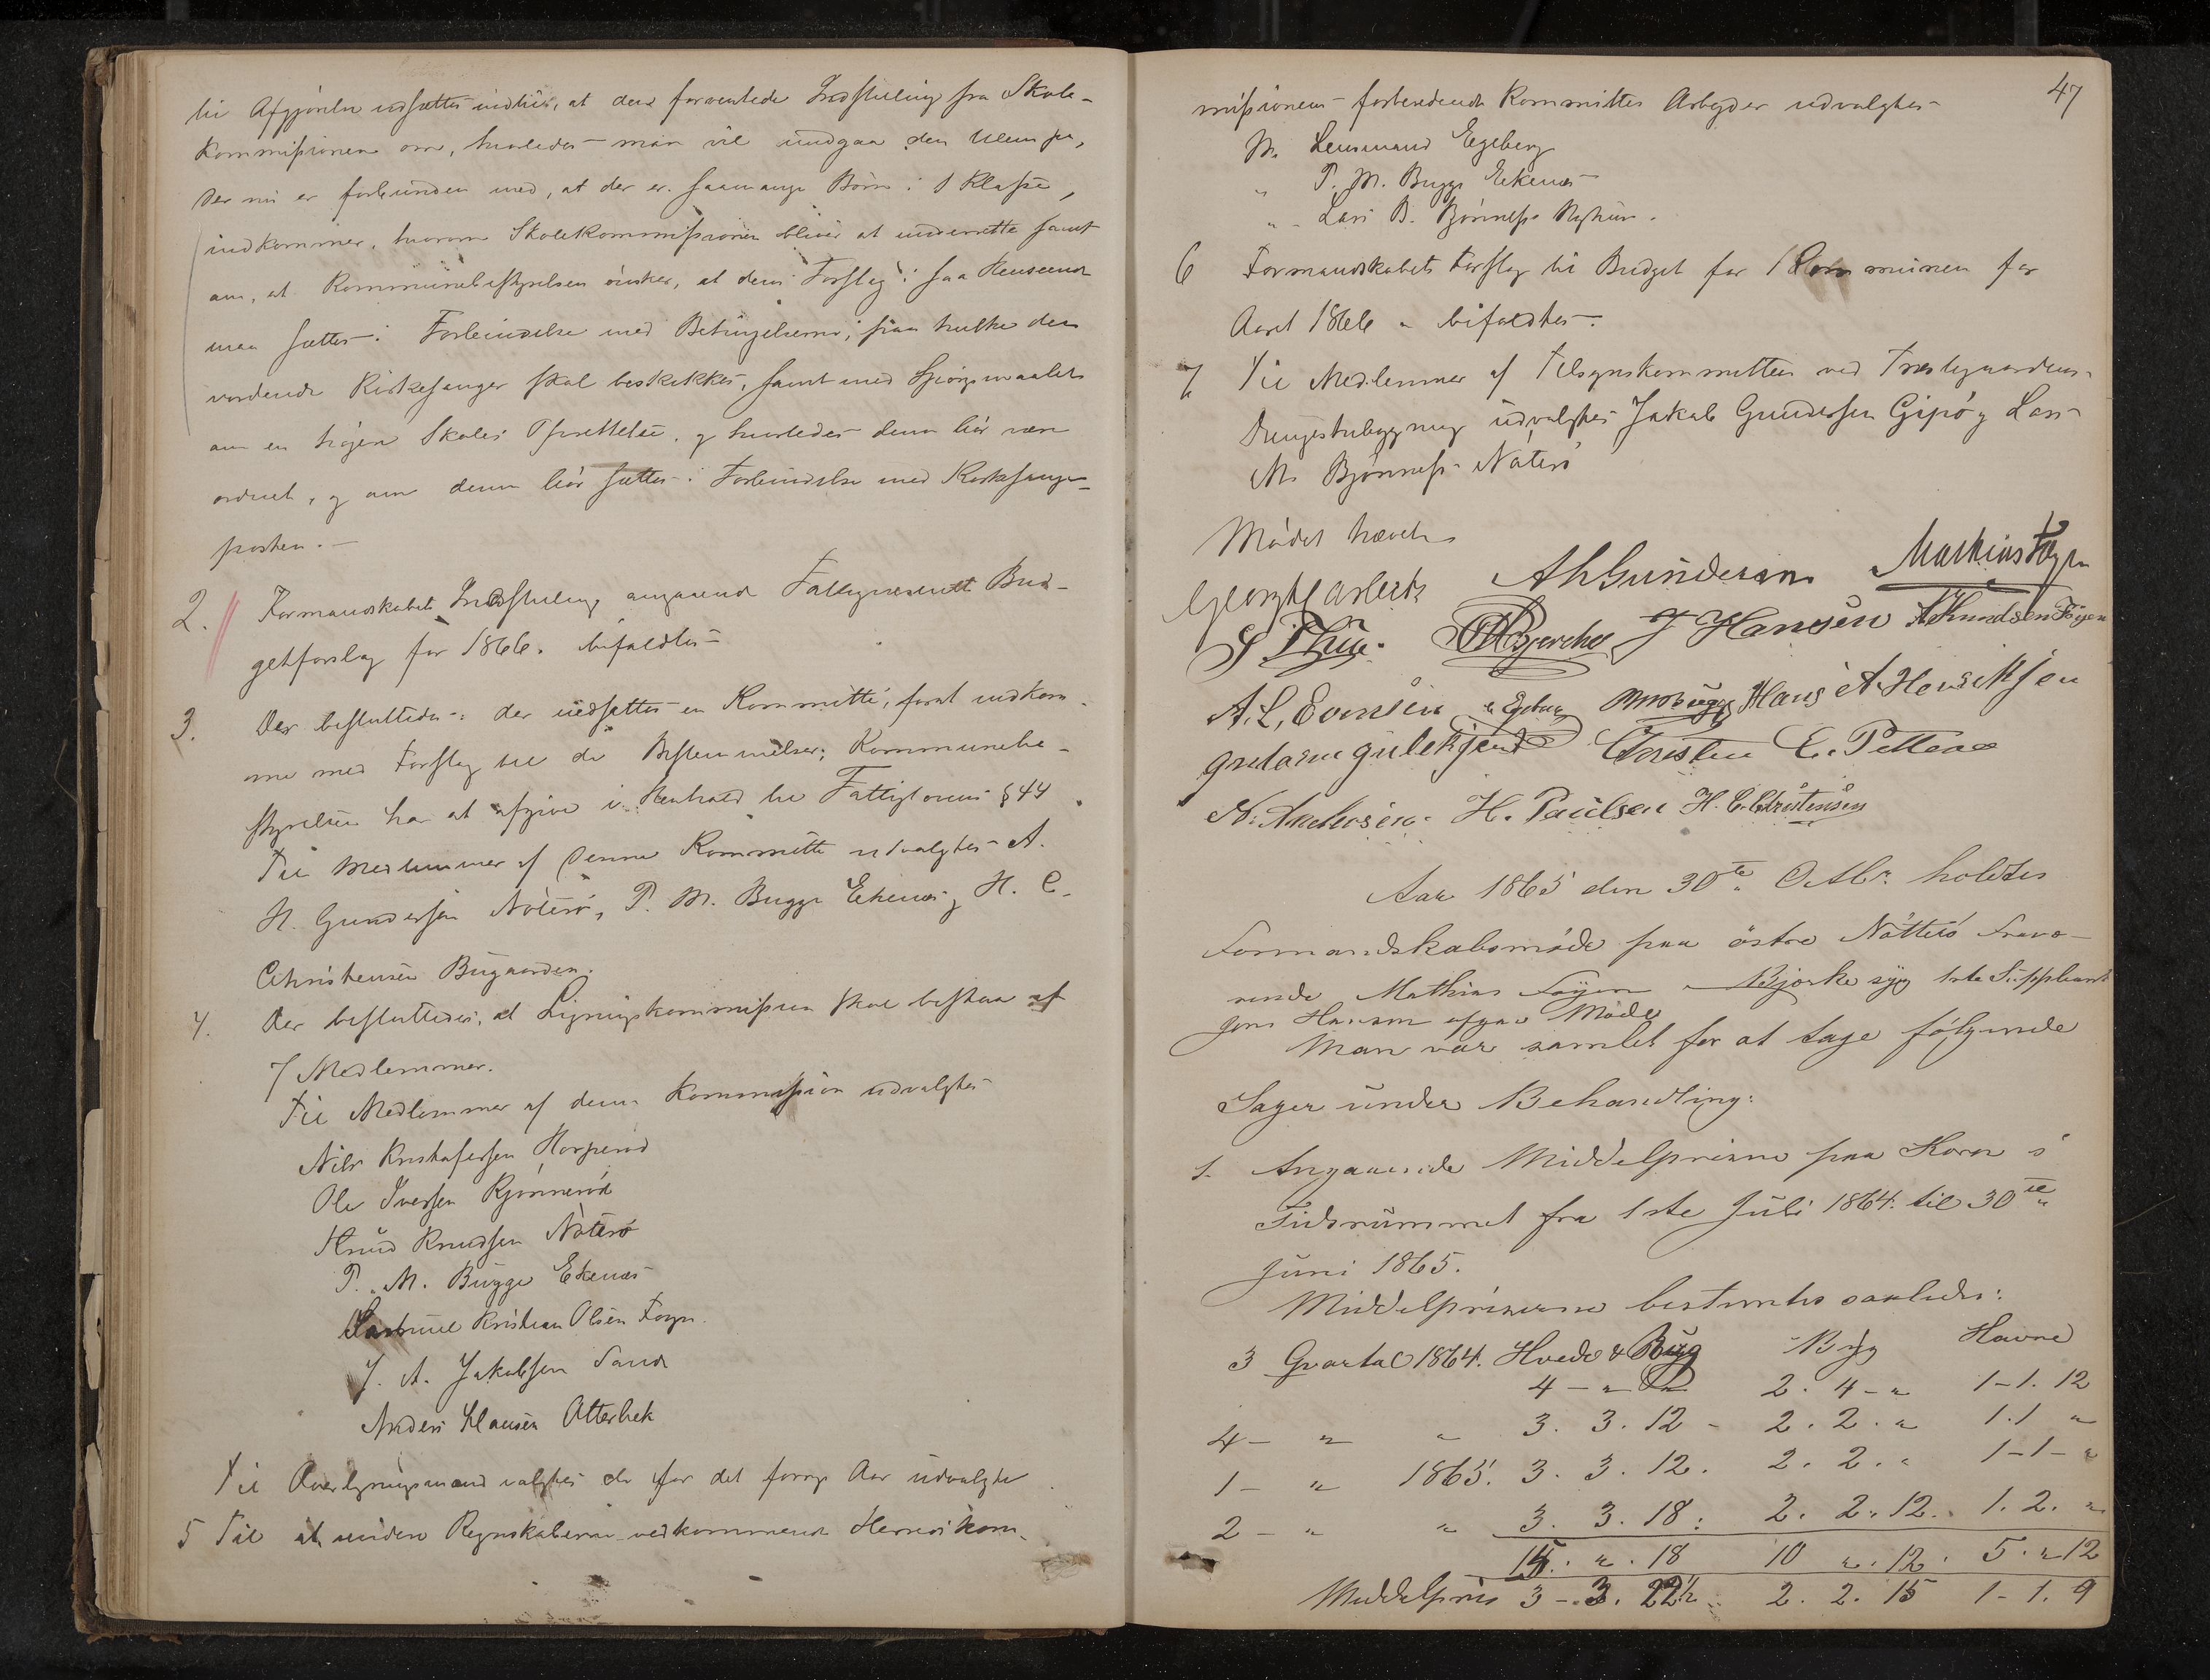 til Afgjörelse udsættes indtil, at den forventede Indstilling fra Skole-
kommissionen om, hvorledes man vil undgaa den Ulempe,
der nu er forbunden med, at der er saamange Börn i 1 Klasse,
indkommer, hvorom Skolekommissionen bliver at underrette samt
om, at Kommunebestyrelsen önsker, at dens Forslag i saa Henseende
maa sættes i Forbindelse med Betingelserne, paa hvilke den
vordende Kirkesanger skal beskikkes, samt med Spörgsmaalet
om en höjere Skoles Oprettelse, og hvorledes denne bör være
ordnet, og om denne bör sættes i Forbindelse med Kirkesanger-
posten.
2. Formandskabets Indstilling angaaende Fattigvæsenets Bud-
getforslag for 1866. bifaldtes
3. Der besluttedes: der nedsættes en Kommitte, samt indkom-
me med Forslag til de Bestemmelser, Kommunebe-
styrelsen har at afgive i Henhold til Fattiglovens § 44.
Til Medlemmer af denne Kommitte udvalgtes A.
H. Gundersen Nöterö, P. M. Bugge Ekenes og H. C.
Christensen Bugaarden.
4. Der besluttedes, at Ligningskommissionen skal bestaa af
7 Medlemmer.
Til Medlemmer af denne Kommission udvalgtes
Nils Kristofersen
Ole Iversen
Knud Knudsen Nöterö
P. M. Bugge Ekenes
Kristian Olsen Foyn
J. A. Jakobsen Sande
Anders Hansen Atterbek
Til Overligningsmænd valgtes de for det forrige Aar udvalgte
5 Til at revidere Regnskaberne vedkommende Herredskom-
47
missionens forberedende Kommittes Arbejder udvalgtes
Hr. Lensmand Egeberg
" P. M. Bugge Ekenes
" Lars B. Bjönnes
6 Formandskabets Forslag til Budget for Kommunen for
Aaret 1866 " bifaldtes.
7. Til Medlemmer af Tilsynskommitteen ved Præstegaardens
udvalgtes Jakob Gundersen Gipö og Lars
M. Bjönnes Nöterö
Mödet hævet
A H Gundersen Mathias Föyn
J Hansen A Knudsen Föyen
A. L. Evensen Egeberg PM Bugge Hans A Henriksen
Christen E. Pettersen
N. Andersen. H. Paulsen H. C. Christensen
Aar 1865 den 30te Octbr. holdtes
Formandskabsmöde paa östre Nötterö Fravæ-
rende Mathias Föyen Bjerke syg 1ste Suppleant
Jens Hansen afgav Möde
Man var samlet for at tage fölgende
Sager under Behandling:
1. Angaaende Middelprisene paa Korn i
Tidsrummet fra 1ste Juli 1864 til 30te
Juni 1865.
Middelpriserne bestemtes saaledes:
3 Qvartal 1864. Hvede & Rug Byg Havre
4 - " 2. 4 - " 1-1. 12
4 - " " 3. 3. 12 - 2. 2. " 1.1 "
1 - " 1865. 3. 3. 12. 2. 2. " 1-1- "
2 - " " 3. 3. 18: 2. 2. 12. 1. 2. "
15. ". 18 10 ". 12. 5. " 12
Middelpris 3 - 3. 22½ 2. 2. 15 1-1. 9